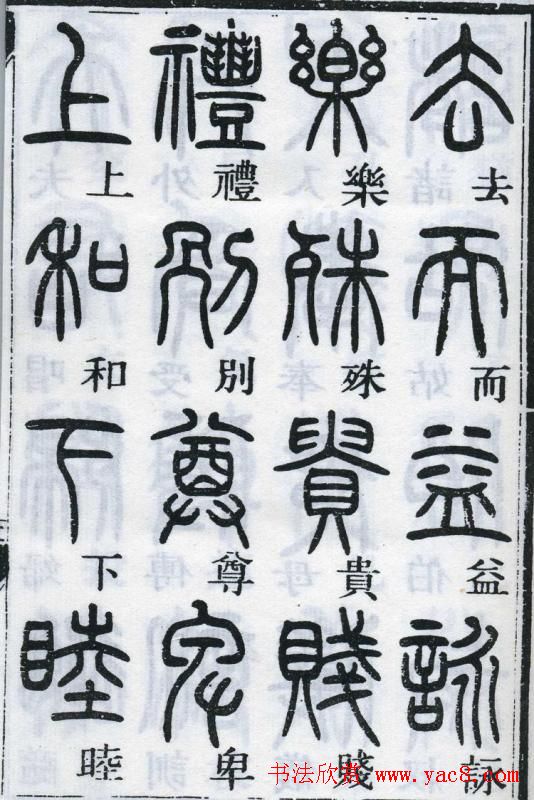 去而益詠
樂殊貴賤
禮別尊卑
上和下睦
书法欣赏 www.yac8.com